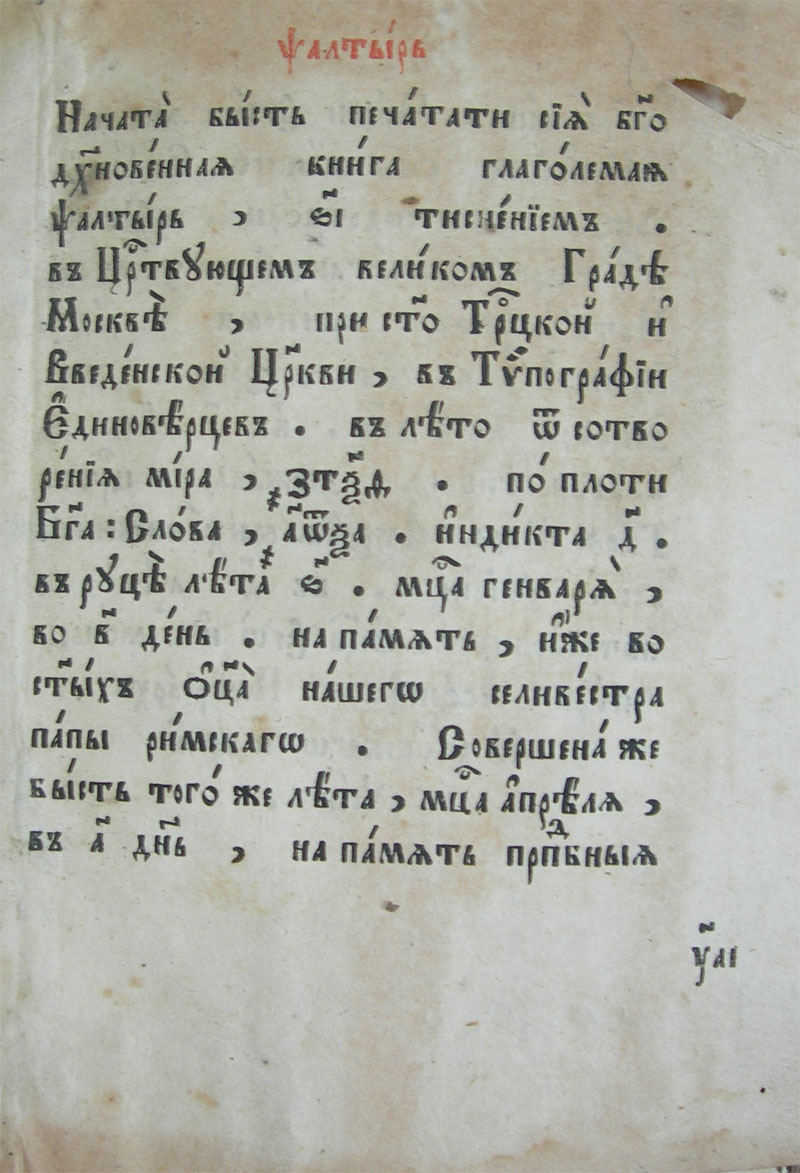 Ѱалты́рь
Начата̀ бы́сть печа́тати сїѧ̀ бг҃о
дх҃нове́ннаѧ кни́га глаго́лемаѧ
ѱалты́рь , є҃і тисне́нїемъ .
въ Црⷭ҇твꙋющемъ вели́комъ Гра́дѣ
Москвѣ̀ , при ст҃о Трⷪ҇цкой и҆
Введе́нской Цр҃кви , въ Тѷпогра́фїи
Є҆диновѣ́рцевъ . въ лѣ́то ѿ сотво
ре́нїѧ мі́ра , ҂зтѯ҃д . по́ плоти
Бг҃а : Сло́ва , ҂а҃ѿѯа . и҆нди́кта д҃ .
въ рꙋцѣ̀ лѣ́та ҂ є҃ . мцⷭ҇а генварѧ̀ ,
во в҃ де́нь . на па́мѧть , и҆́же во
ст҃ы́хъ Ѻ҆ц҃а̀ на́шегѡ селиве́стра
па́пы ри́мскагѡ . Соверше́на же
бы́сть того́ же лѣ́та , мцⷭ҇а а҆прѣ́лѧ ,
въ а҃ дн҃ь , на па́мѧть прпⷣбныѧ
у҃аі